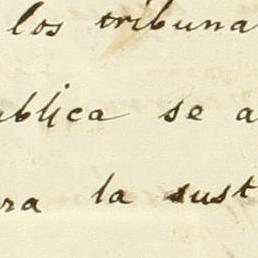 los tribuna
ublica se a
ra la sust